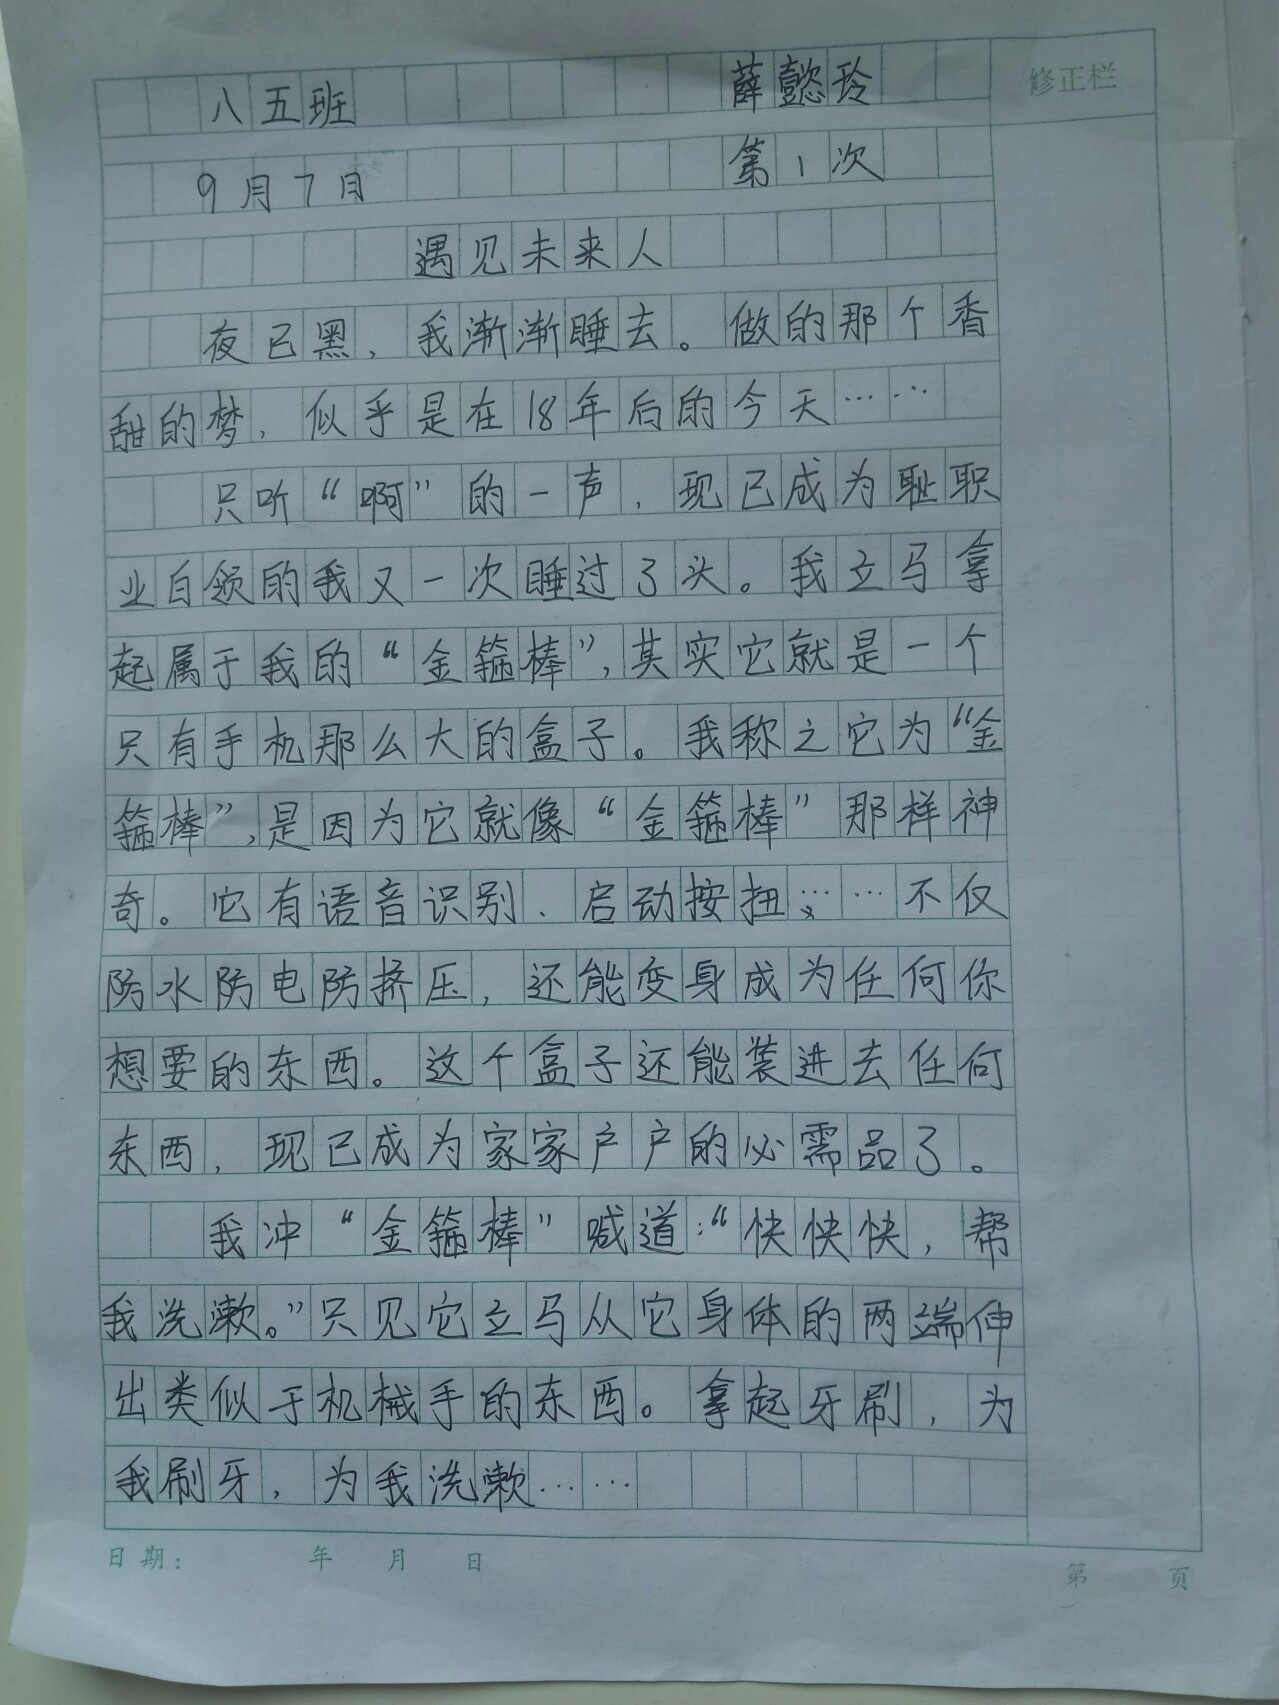 八五班 薛懿玲 修正栏
9月7日 第1次
遇见未来人
夜已黑，我渐渐睡去。做的那个香
甜的梦，似乎是在18年后的今天……
只听“啊”的一声，现已成为耻职
业白领的我又一次睡过了头。我立马拿
起属于我的“金箍棒”，其实它就是一个
只有手机那么大的盒子。我称之它为“金
箍棒”，是因为它就像“金箍棒”那样神
奇。它有语音识别、启动按扭……不仅
防水防电防挤压，还能变身成为任何你
想要的东西。这个盒子还能装进去任何
东西，现已成为家家户户的必需品了。
我冲“金箍棒”喊道：“快快快，帮
我洗漱。”只见它立马从它身体的两端伸
出类似于机械手的东西。拿起牙刷，为
我刷牙，为我洗漱……
日期： 年 月 日 第 页